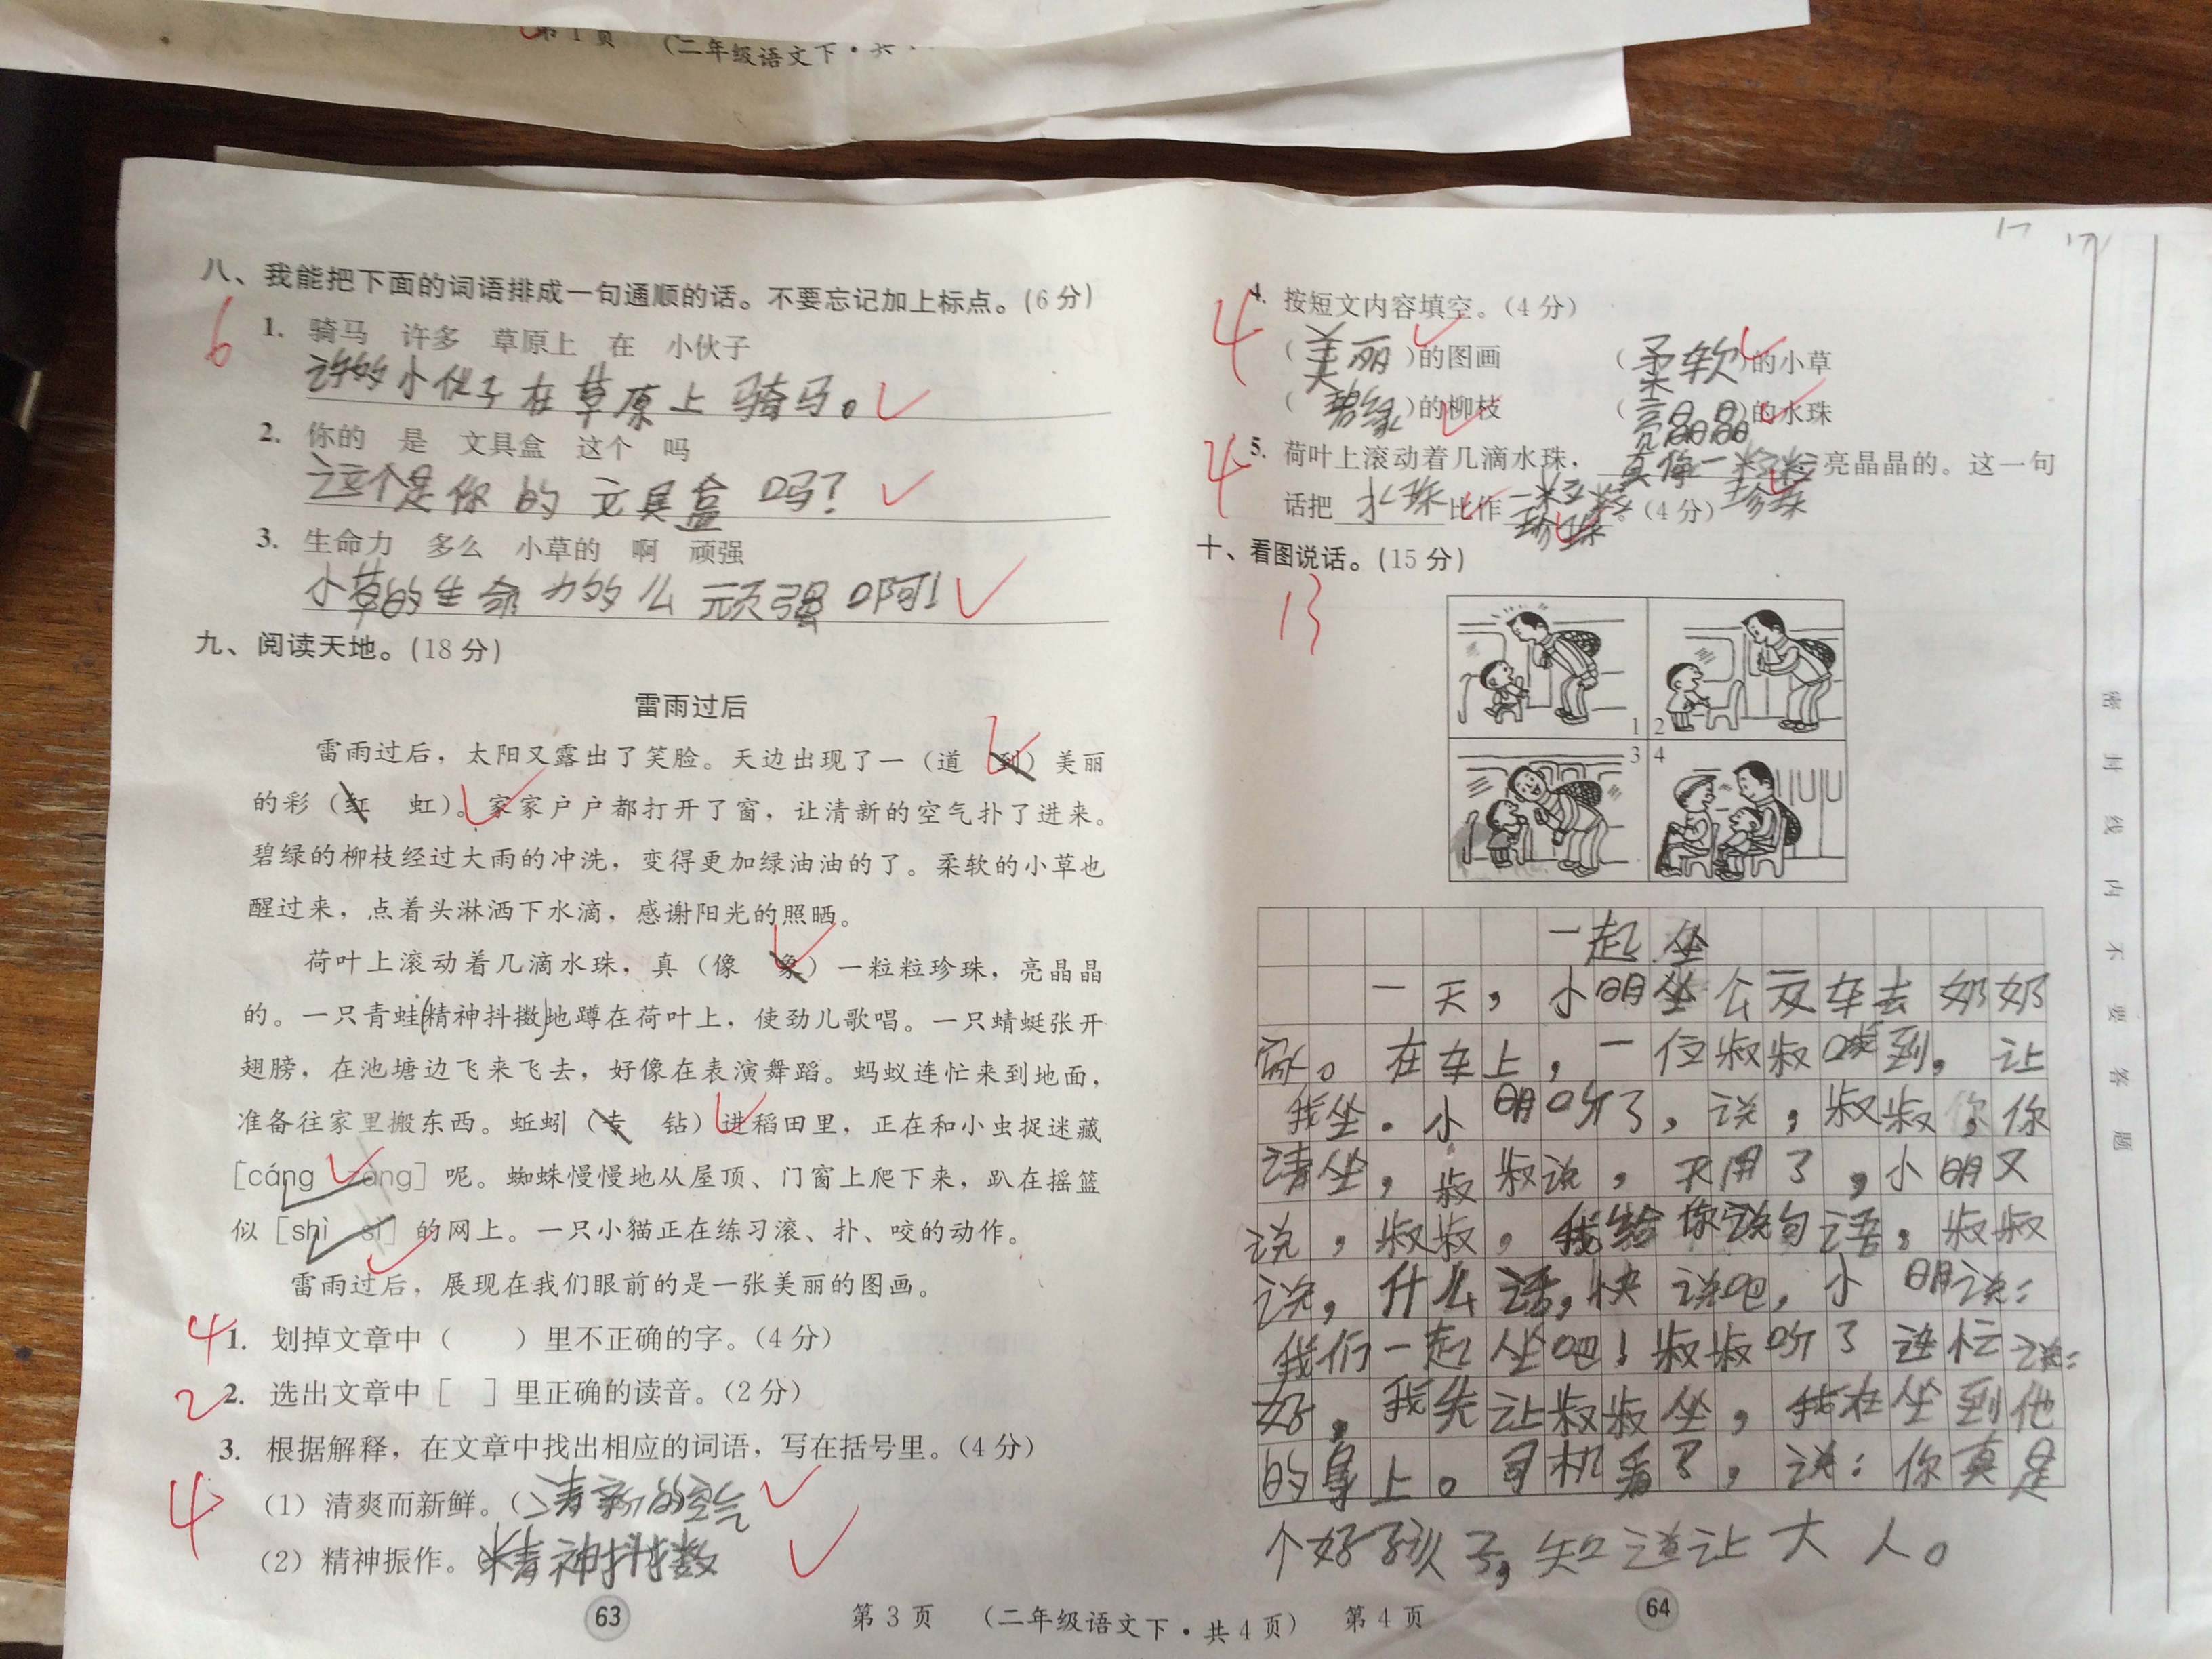 第1页 (二年级语文下·共
八、我能把下面的词语排成一句通顺的话。不要忘记加上标点。(6分)
6
1. 骑马 许多 草原上 在 小伙子
许多小伙子在草原上骑马。
2. 你的 是 文具盒 这个 吗
这个是你的文具盒吗?
3. 生命力 多么 小草的 啊 顽强
小草的生命力多么顽强啊!
九、阅读天地。(18分)
雷雨过后
雷雨过后，太阳又露出了笑脸。天边出现了一（道 到）美丽
的彩（红 虹）。家家户户都打开了窗，让清新的空气扑了进来。
碧绿的柳枝经过大雨的冲洗，变得更加绿油油的了。柔软的小草也
醒过来，点着头淋洒下水滴，感谢阳光的照晒。
荷叶上滚动着几滴水珠，真（像 象）一粒粒珍珠，亮晶晶
的。一只青蛙(精神抖擞)地蹲在荷叶上，使劲儿歌唱。一只蜻蜓张开
翅膀，在池塘边飞来飞去，好像在表演舞蹈。蚂蚁连忙来到地面，
准备往家里搬东西。蚯蚓（专 钻）进稻田里，正在和小虫捉迷藏
[cáng zàng] 呢。蜘蛛慢慢地从屋顶、门窗上爬下来，趴在摇篮
似 [shì sì] 的网上。一只小猫正在练习滚、扑、咬的动作。
雷雨过后，展现在我们眼前的是一张美丽的图画。
4 1. 划掉文章中（ ）里不正确的字。(4分)
2 2. 选出文章中［ ］里正确的读音。(2分)
3. 根据解释，在文章中找出相应的词语，写在括号里。(4分)
4 (1) 清爽而新鲜。(清新的空气
(2) 精神振作。(精神抖擞
63 第3页 (二年级语文下·共4页) 第4页 64
4 4. 按短文内容填空。(4分)
（美丽）的图画 （柔软）的小草
（碧绿）的柳枝 （亮晶晶）的水珠
4 5. 荷叶上滚动着几滴水珠，真像一粒粒珍珠，亮晶晶的。这一句
话把水珠比作一粒粒珍珠。(4分)
十、看图说话。(15分)
13
1 2
3 4
一起坐
一天，小明坐公交车去奶奶
家。在车上，一位叔叔 到，让
我坐。小明听了，说，叔叔，你
请坐，叔叔说，不用了，小明又
说，叔叔，我给你说句话，叔叔
说，什么话，快说吧，小明说：
我们一起坐吧！叔叔听了连忙说：
好，我先让叔叔坐，我在坐到他
的身上。司机看了，说：你真是
个好孩子，知道让大人。
密封线内不要答题